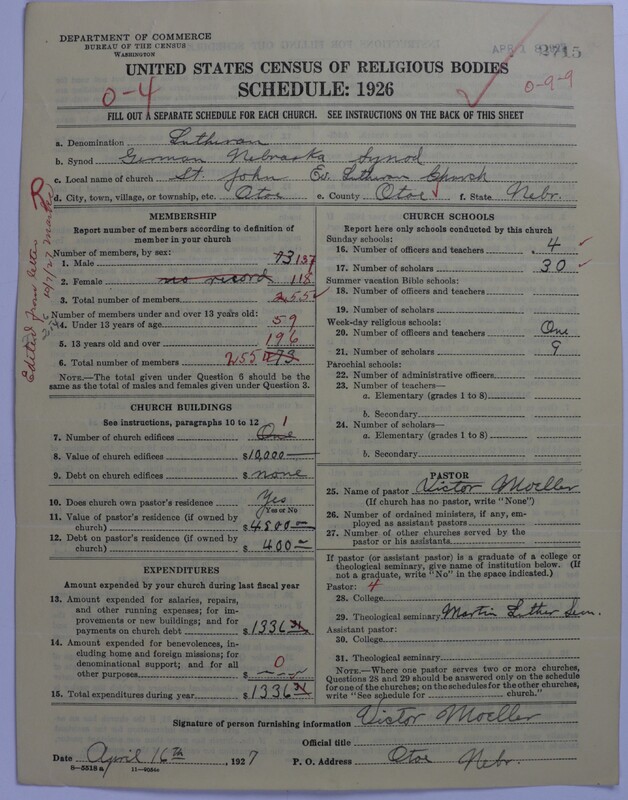 DEPARTMENT OF COMMERCE
BUREAU OF THE CENSUS
WASHINGTON
2715
UNITED STATES CENSUS OF RELIGIOUS BODIES
SCHEDULE: 1926
0-4
0-9-9
FILL OUT A SEPARATE SCHEDULE FOR EACH CHURCH. SEE INSTRUCTIONS ON THE BACK OF THIS SHEET
a. Denomination Lutheran
b. Synod German Nebraska Synod
c. Local name of church St. John Ev. Lutheran Church
d. City, town, village, or township, etc. Otoe e. County Otoe f. State Nebr.
Edited from letter
10/7/27
MEMBERSHIP
Report number of members according to definition of member in your church
Number of members, by sex:
1. Male 73 137
2. Female no record 118
3. Total number of members 255
Number of members under and over 13 years old:
4. Under 13 years of age 59
5. 13 years old and over 196
6. Total number of members 255 73
NOTE.—The total given under Question 6 should be the same as the total of males and females given under Question 3.
CHURCH BUILDINGS
See instructions, paragraphs 10 to 12
7. Number of church edifices One 1
8. Value of church edifices $10,000
9. Debt on church edifices $ none
10. Does church own pastor's residence Yes
Yes or No
11. Value of pastor's residence (if owned by church) $4500
12. Debt on pastor's residence (if owned by church) $ 400
EXPENDITURES
Amount expended by your church during last fiscal year
13. Amount expended for salaries, repairs, and other running expenses; for improvements or new buildings; and for payments on church debt $ 1336 31
14. Amount expended for benevolences, including home and foreign missions; for denominational support; and for all other purposes $ 0
15. Total expenditures during year $1336 31
CHURCH SCHOOLS
Report here only schools conducted by this church
Sunday schools:
16. Number of officers and teachers 4
17. Number of scholars 30
Summer vacation Bible schools:
18. Number of officers and teachers
19. Number of scholars
Week-day religious schools:
20. Number of officers and teachers One
21. Number of scholars 9
Parochial schools:
22. Number of administrative officers
23. Number of teachers—
a. Elementary (grades 1 to 8)
b. Secondary
24. Number of scholars—
a. Elementary (grades 1 to 8)
b. Secondary
PASTOR
25. Name of pastor Victor Moeller
(If church has no pastor, write "None")
26. Number of ordained ministers, if any, employed as assistant pastors
27. Number of other churches served by the pastor or his assistants
If pastor (or assistant pastor) is a graduate of a college or theological seminary, give name of institution below. (If not a graduate, write "No" in the space indicated.)
Pastor: 4
28. College
29. Theological seminary Martin Luther Sem.
Assistant pastor:
30. College
31. Theological seminary
NOTE.—Where one pastor serves two or more churches, Questions 28 and 29 should be answered only on the schedule for one of the churches; on the schedules for the other churches, write "See schedule for church."
Signature of person furnishing information Victor Moeller
Official title
Date April 16th, 1927 P. O. Address Otoe Nebr.
8-5518a 11-9054a